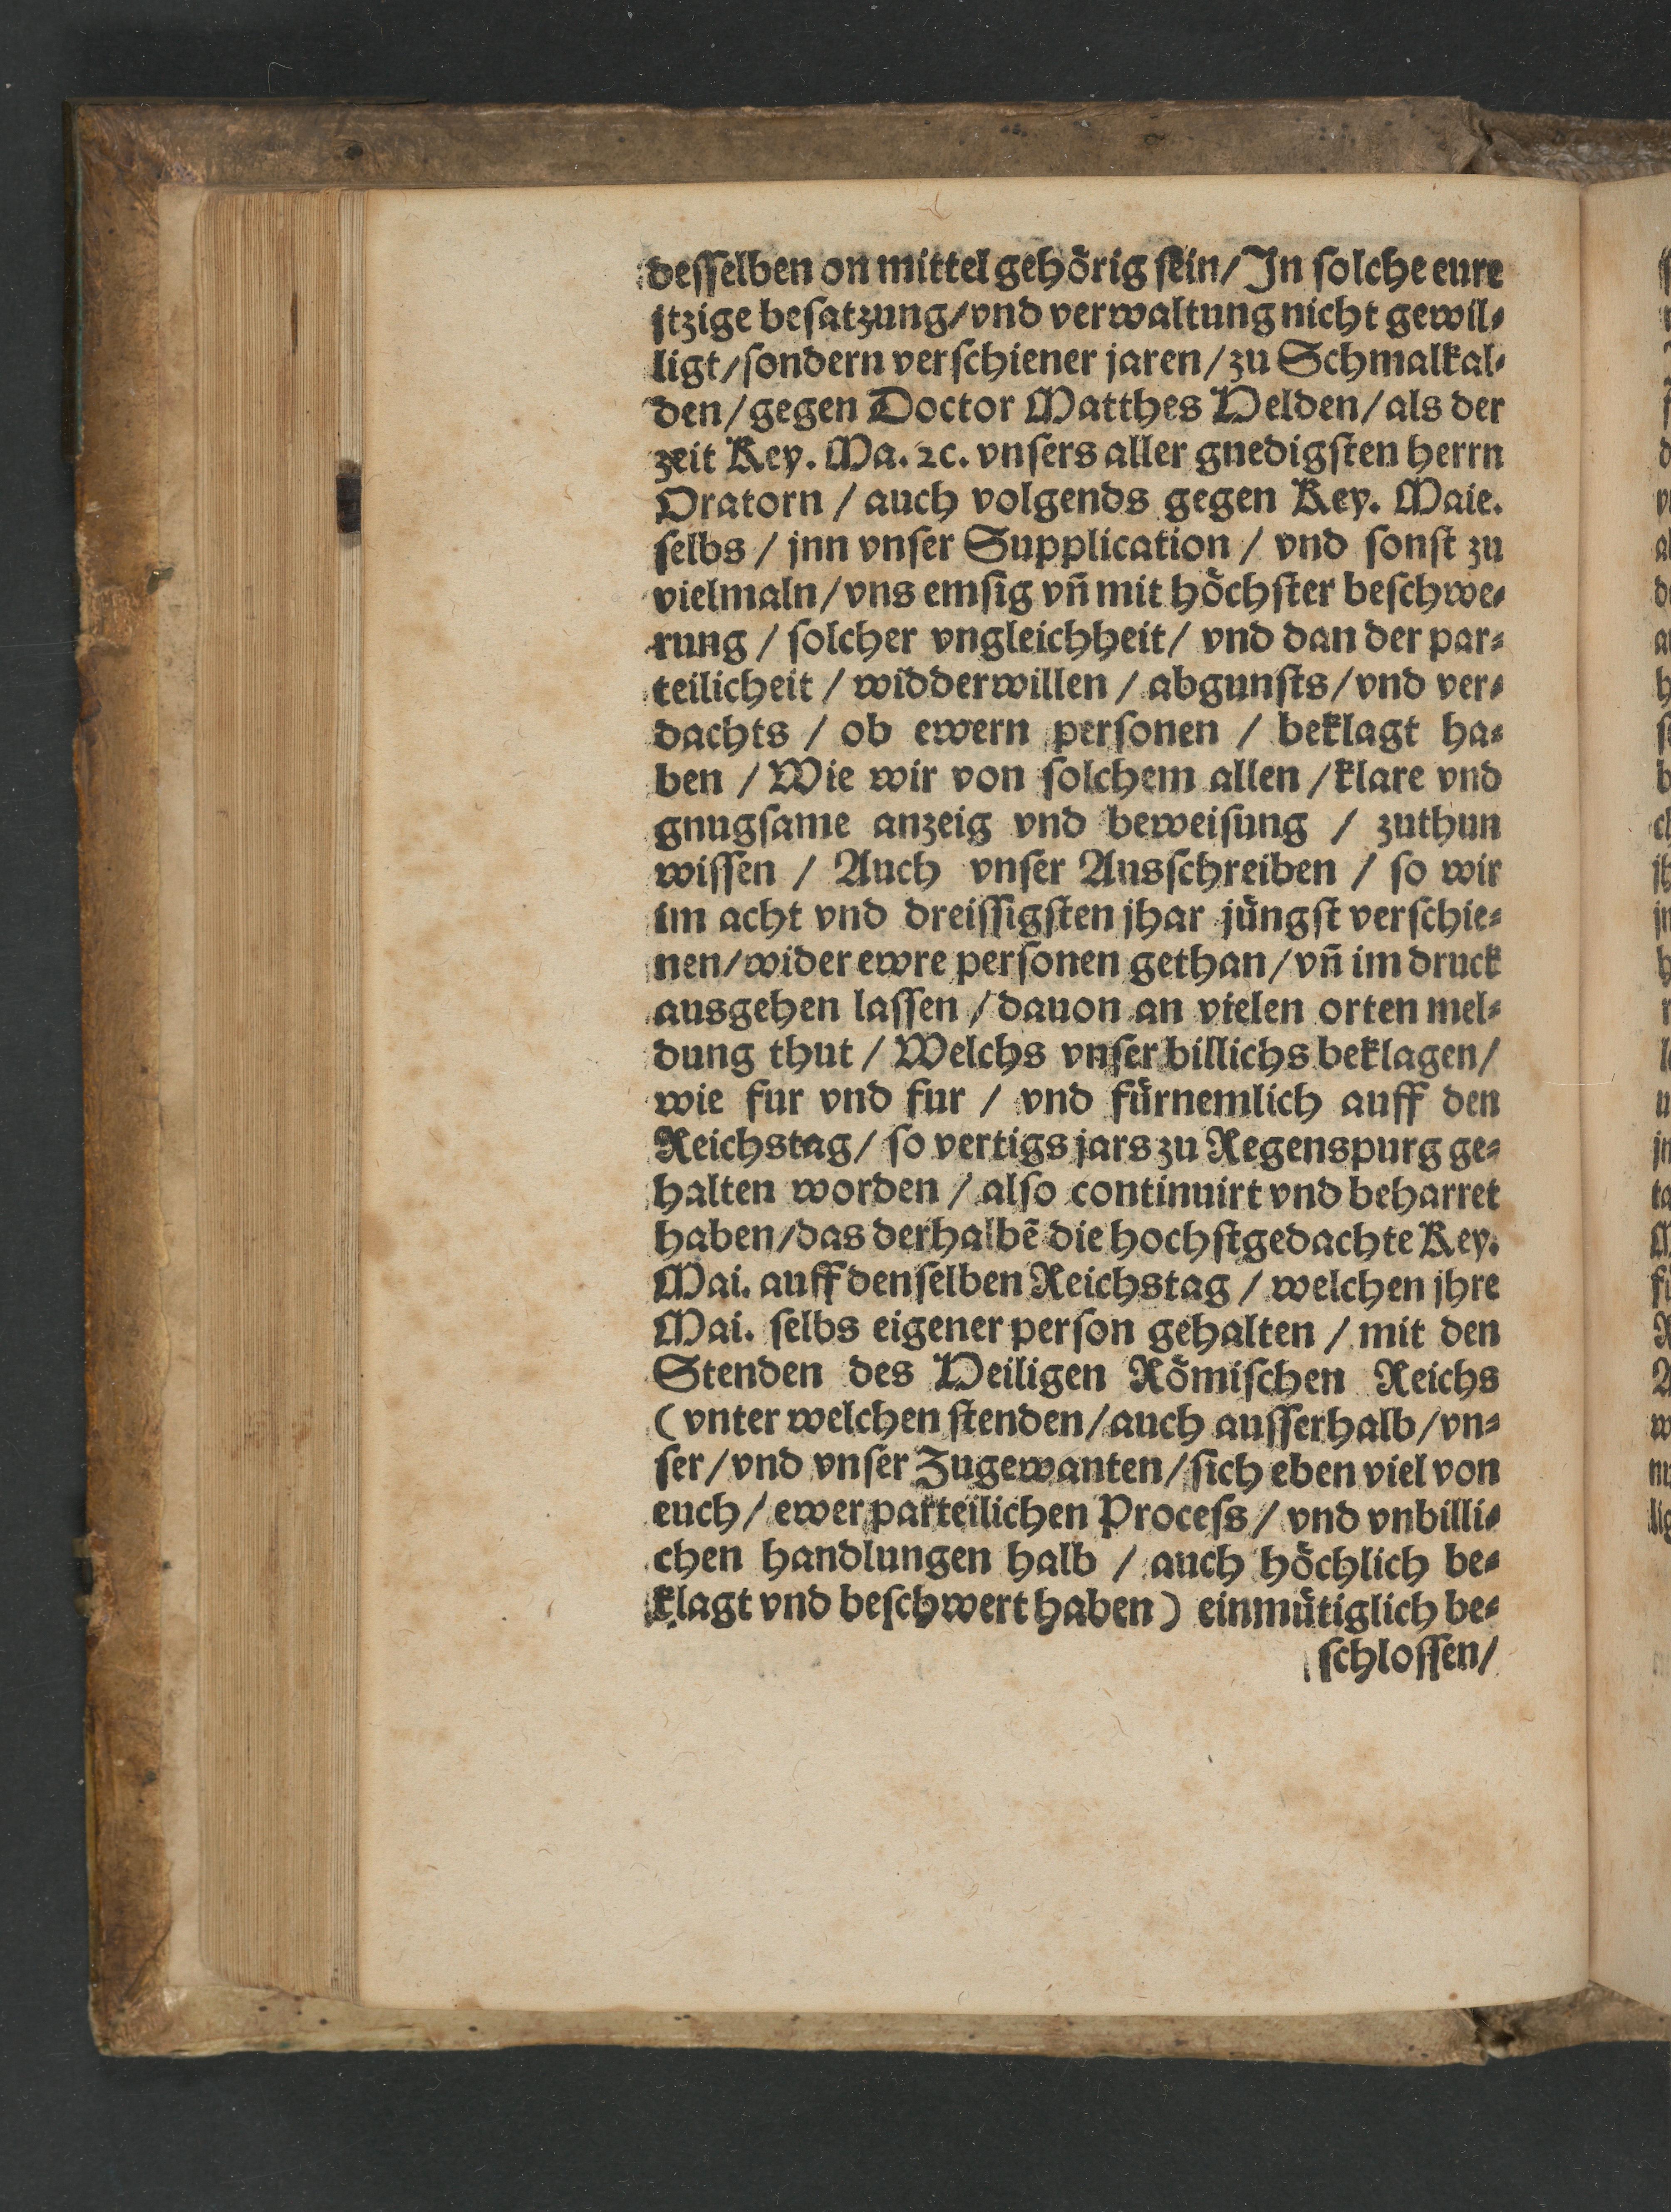 desselben on mittel gehörig sein/ In solche eure
jtzige besatzung/ vnd verwaltung nicht gewil⸗
ligt/ sondern verschiener jaren/ zu Schmalkal⸗
den/ gegen Doctor Matthes Helden/ als der
zeit Key. Ma. ꝛc. vnsers aller gnedigsten herrn
Oratorn / auch volgends gegen Key. Maie.
selbs / jnn vnser Supplication / vnd sonst zu
vielmaln/ vns emsig vñ mit höchster beschwe⸗
rung / solcher vngleichheit/ vnd dan der par⸗
teilicheit / widderwillen / abgunsts/ vnd ver⸗
dachts / ob ewern personen / beklagt ha⸗
ben / Wie wir von solchem allen / klare vnd
gnugsame anzeig vnd beweisung / zuthun
wissen / Auch vnser Ausschreiben / so wir
im acht vnd dreissigsten jhar jüngst verschie⸗
nen/ wider ewre personen gethan/ vñ im druck
ausgehen lassen / dauon an vielen orten mel⸗
dung thut / Welchs vnser billichs beklagen/
wie fur vnd fur / vnd fürnemlich auff den
Reichstag/ so vertigs jars zu Regenspurg ge⸗
halten worden / also continuirt vnd beharret
haben/ das derhalbẽ die hochstgedachte Key.
Mai. auff denselben Reichstag / welchen jhre
Mai. selbs eigener person gehalten / mit den
Stenden des Heiligen Römischen Reichs
(vnter welchen stenden/ auch ausserhalb/ vn⸗
ser/ vnd vnser Zugewanten/ sich eben viel von
euch/ ewer parteilichen Process/ vnd vnbilli⸗
chen handlungen halb / auch höchlich be⸗
klagt vnd beschwert haben) einmütiglich be⸗
schlossen/